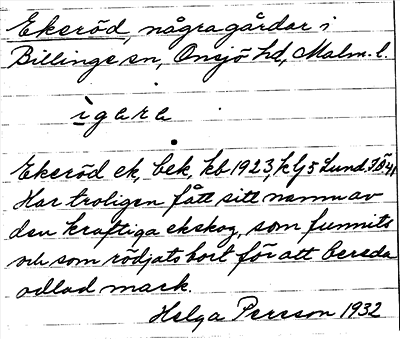 Ekeröd, några gårdar i
Billinge sn, Onsjö hd, Malm. l.
i g a r a
Ekeröd ek, bek, kb 1923, klj 5 Lund
Har troligen fått sitt namn av
den kraftiga ekskog, som funnits
och som rödjats bort för att bereda
odlad mark.
Helga Persson 1932